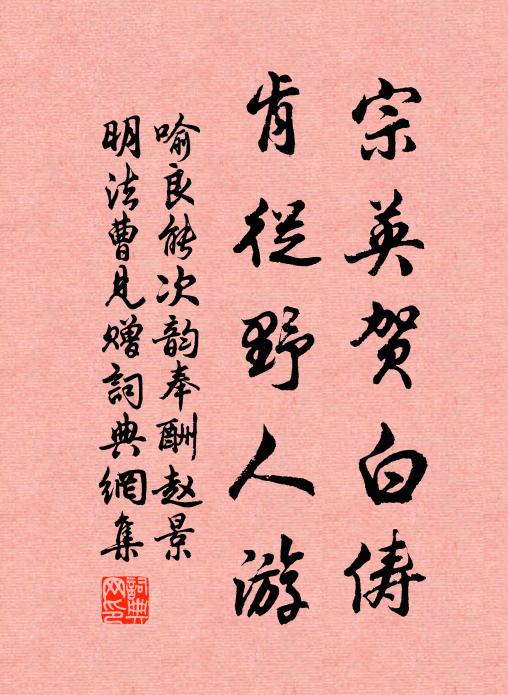 宗英贺白俦
肯從野人游
喻良能次韵奉酬赵景
明法曹见赠詞典網集